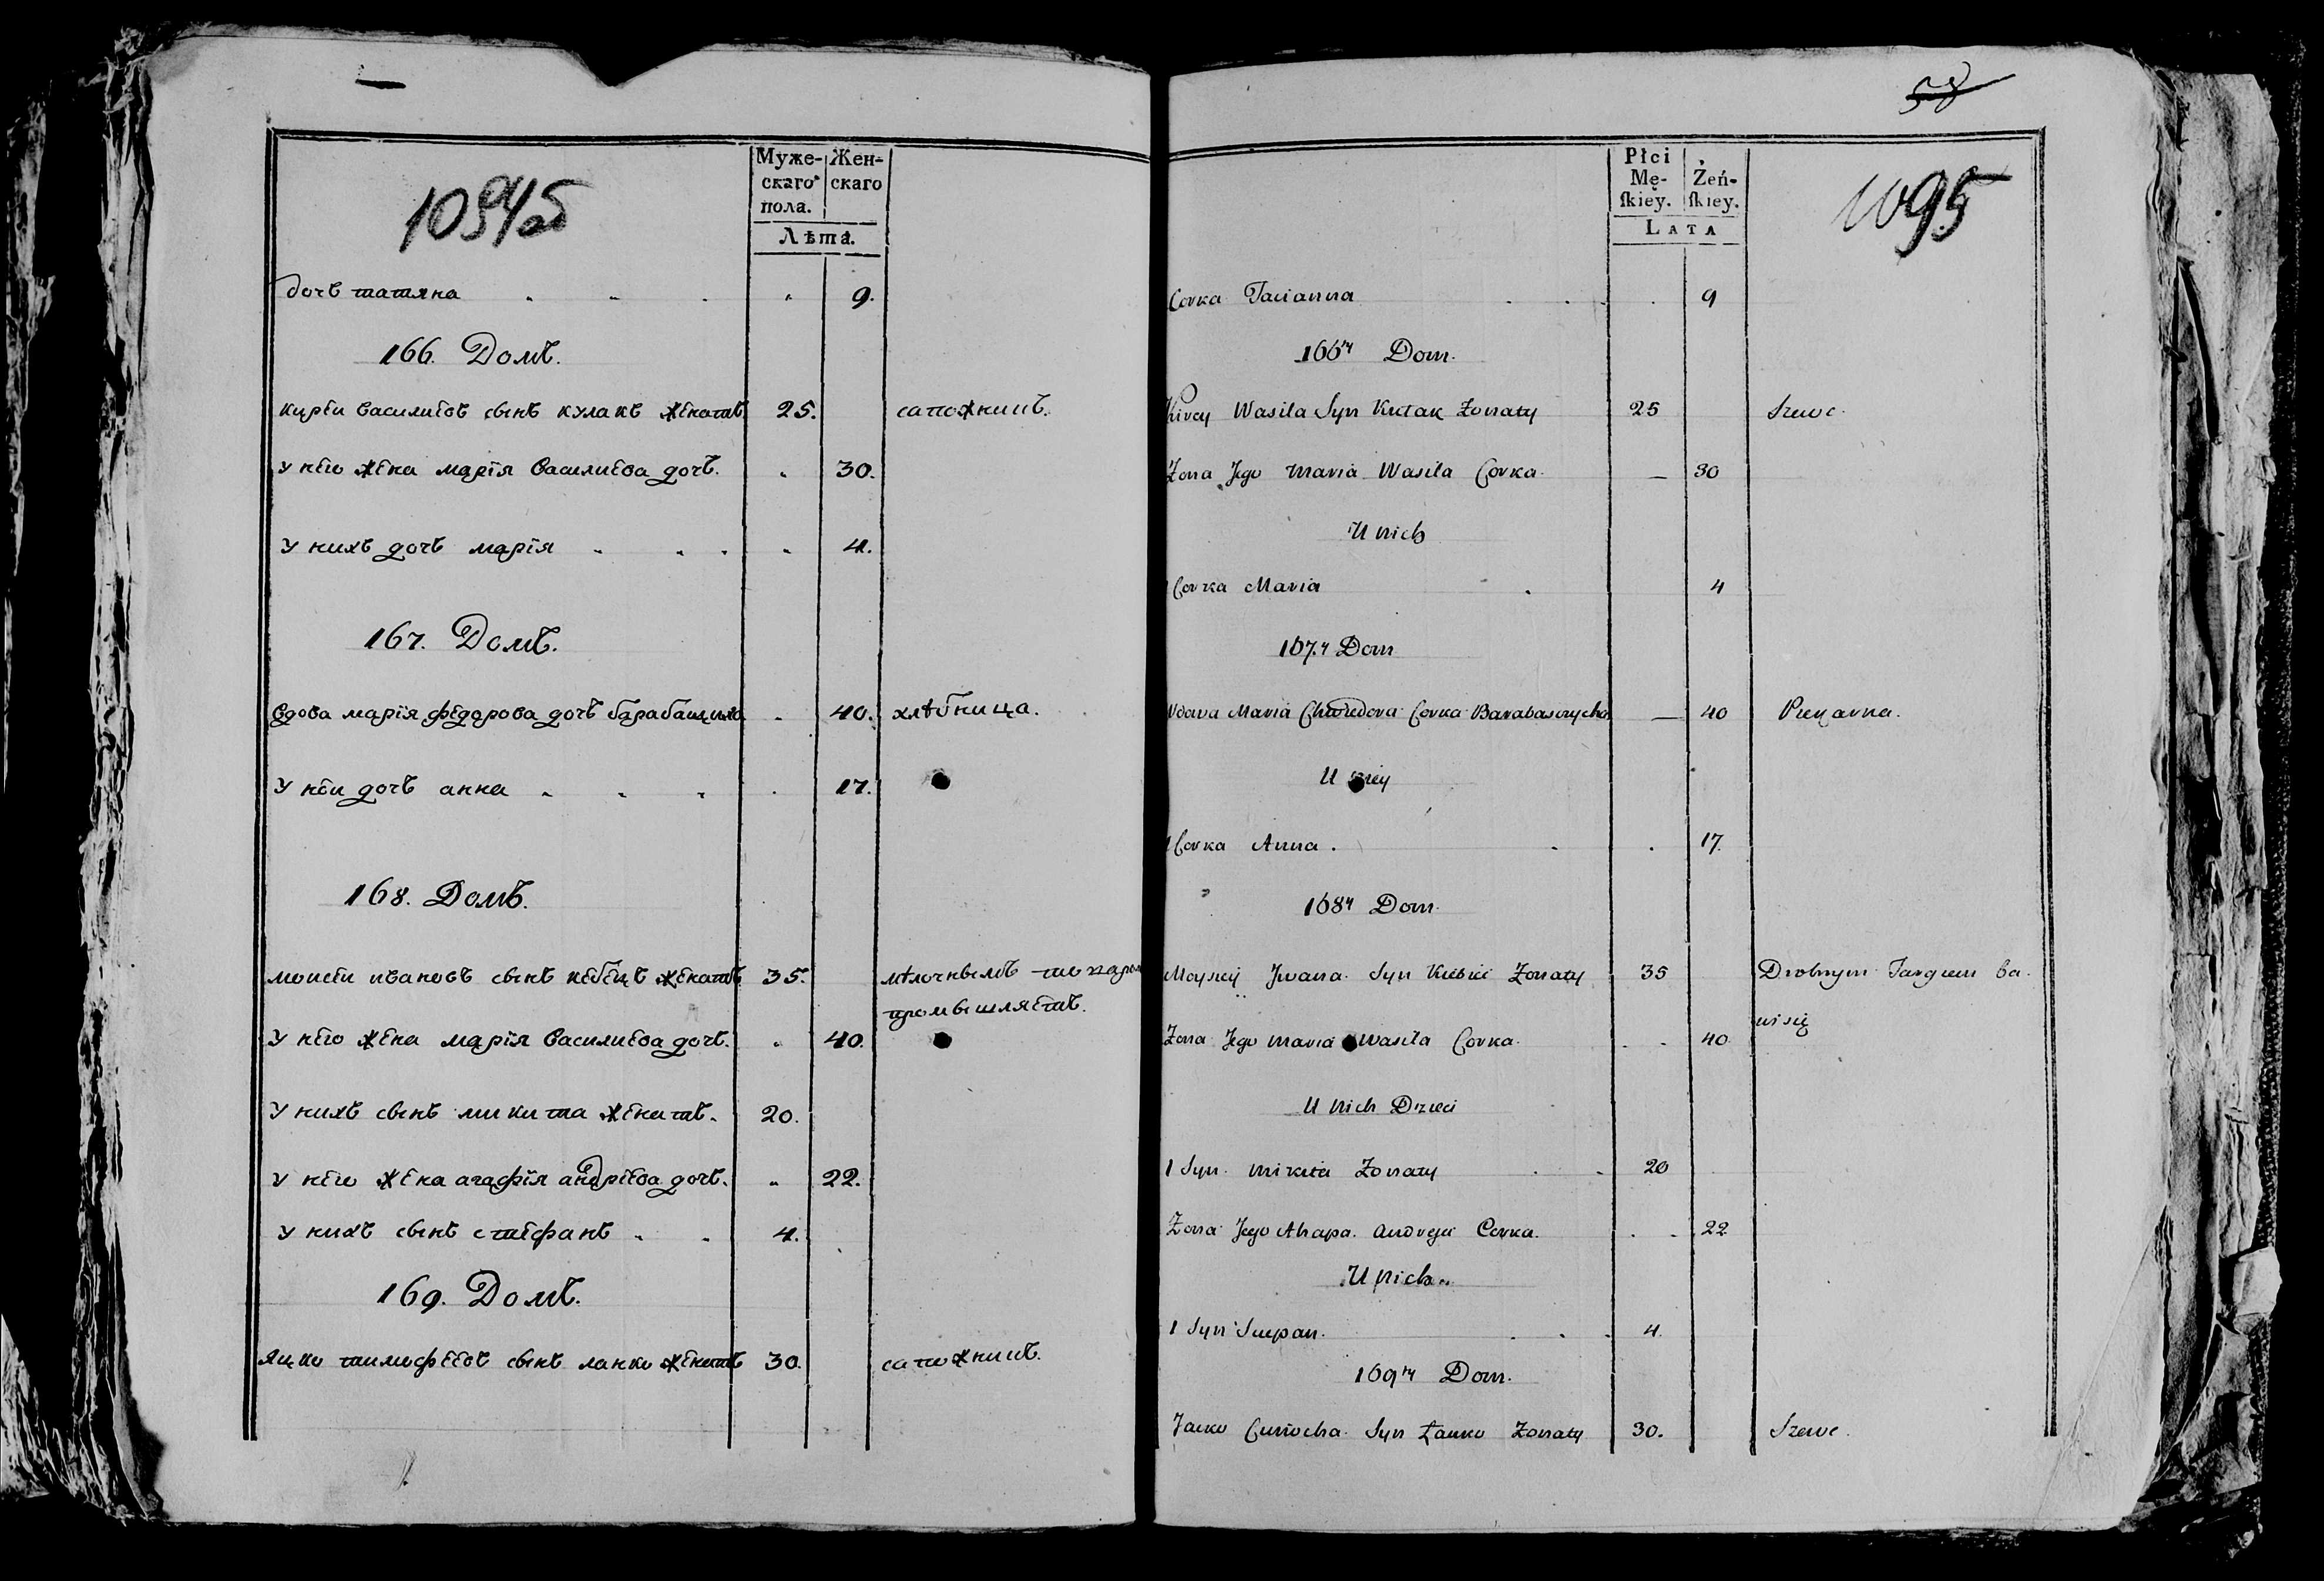 58
1094об
Муже- Жен-
скаго скаго
пола.
Лѣта.
дочь татяна 9.
166. Домъ.
кирей василиевъ сынъ кулакъ женатъ 25. сапожникъ.
У него жена марїя василиева дочь. 30.
У нихъ дочь марїя 4.
167. Домъ.
вдова марїя федорова дочь 40. хлѣбница.
У ней дочь анна 17.
168. Домъ.
моисей ивановъ сынъ кебецъ женатъ 35. мѣлочнымъ
промышляетъ.
У него жена марїя василиева дочь. 40.
У нихъ сынъ микита женатъ. 20.
У него жена агафїя андрїева дочь. 22.
У нихъ сынъ стефанъ 4.
169. Домъ.
яцко тимофеевъ сынъ ланко женатъ 30. сапожникъ.
1095
Płci
Mę- Żeń-
ſkiey. ſkiey.
LATA
Corka Tacianna 9
166ty Dom.
Kirey Wasila Syn Kułak Zonaty 25 Szewc.
Zona Jego Maria Wasila Corka. — 30
U nich
1 Corka Maria 4
167.y Dom
Wdowa Maria Chwedora Corka Barabaszycha — 40 Piekarka.
U niey
1 Corka Anna. 17.
168y Dom.
Moysiey Jwana Syn Zonaty 35 Drobnym Targiem ba-
wi się
Zona Jego Maria Wasila Corka. 40
U nich Dzieci
1 Syn. Mikita Zonaty 20
Zona Jego Ahapa. Andreja Corka. 22
U nich
1 Syn Stepan. 4.
169ty Dom.
Jacko Syn Łanko Zonaty 30. Szewc.